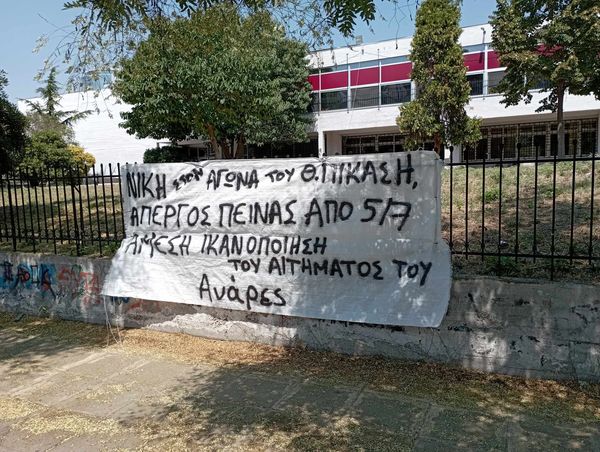 ΝΙΚΗ ΣΤΟΝ ΑΓΩΝΑ ΤΟΥ Θ.ΠΙΚΑΣΗ,
ΑΠΕΡΓΟΣ ΠΕΙΝΑΣ ΑΠΟ 5/7
ΑΜΕΣΗ ΙΚΑΝΟΠΟΙΗΣΗ
ΤΟΥ ΑΙΤΗΜΑΤΟΣ ΤΟΥ
Ανάρες